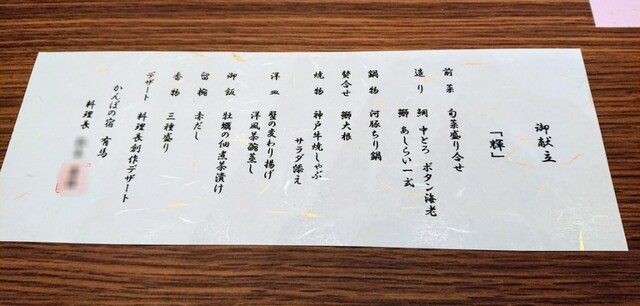 御献立
「輝」
前菜 旬菜盛り合せ
造り 鯛 中とろ ボタン海老
鰤 あしらい一式
鍋物 河豚ちり鍋
焚合せ 鰤大根
焼物 神戸牛焼しゃぶ
サラダ添え
洋皿 蟹の変わり揚げ
洋風茶碗蒸し
御飯 牡蠣の佃煮茶漬け
留椀 赤だし
香物 三種盛り
デザート 料理長創作デザート
かんぽの宿 有馬
料理長